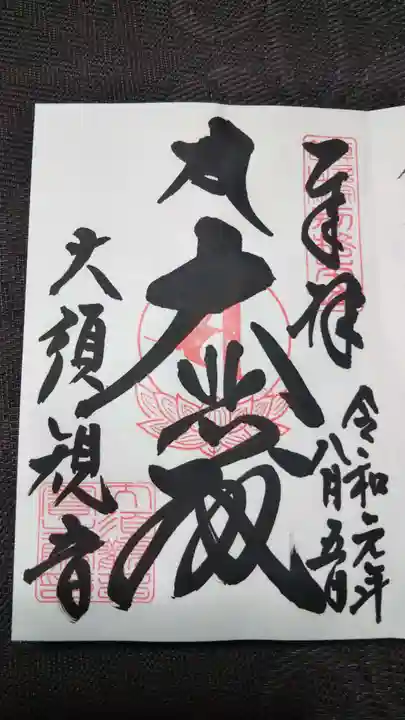 奉拝
令和元年
八月五日
大悲殿
大須観音